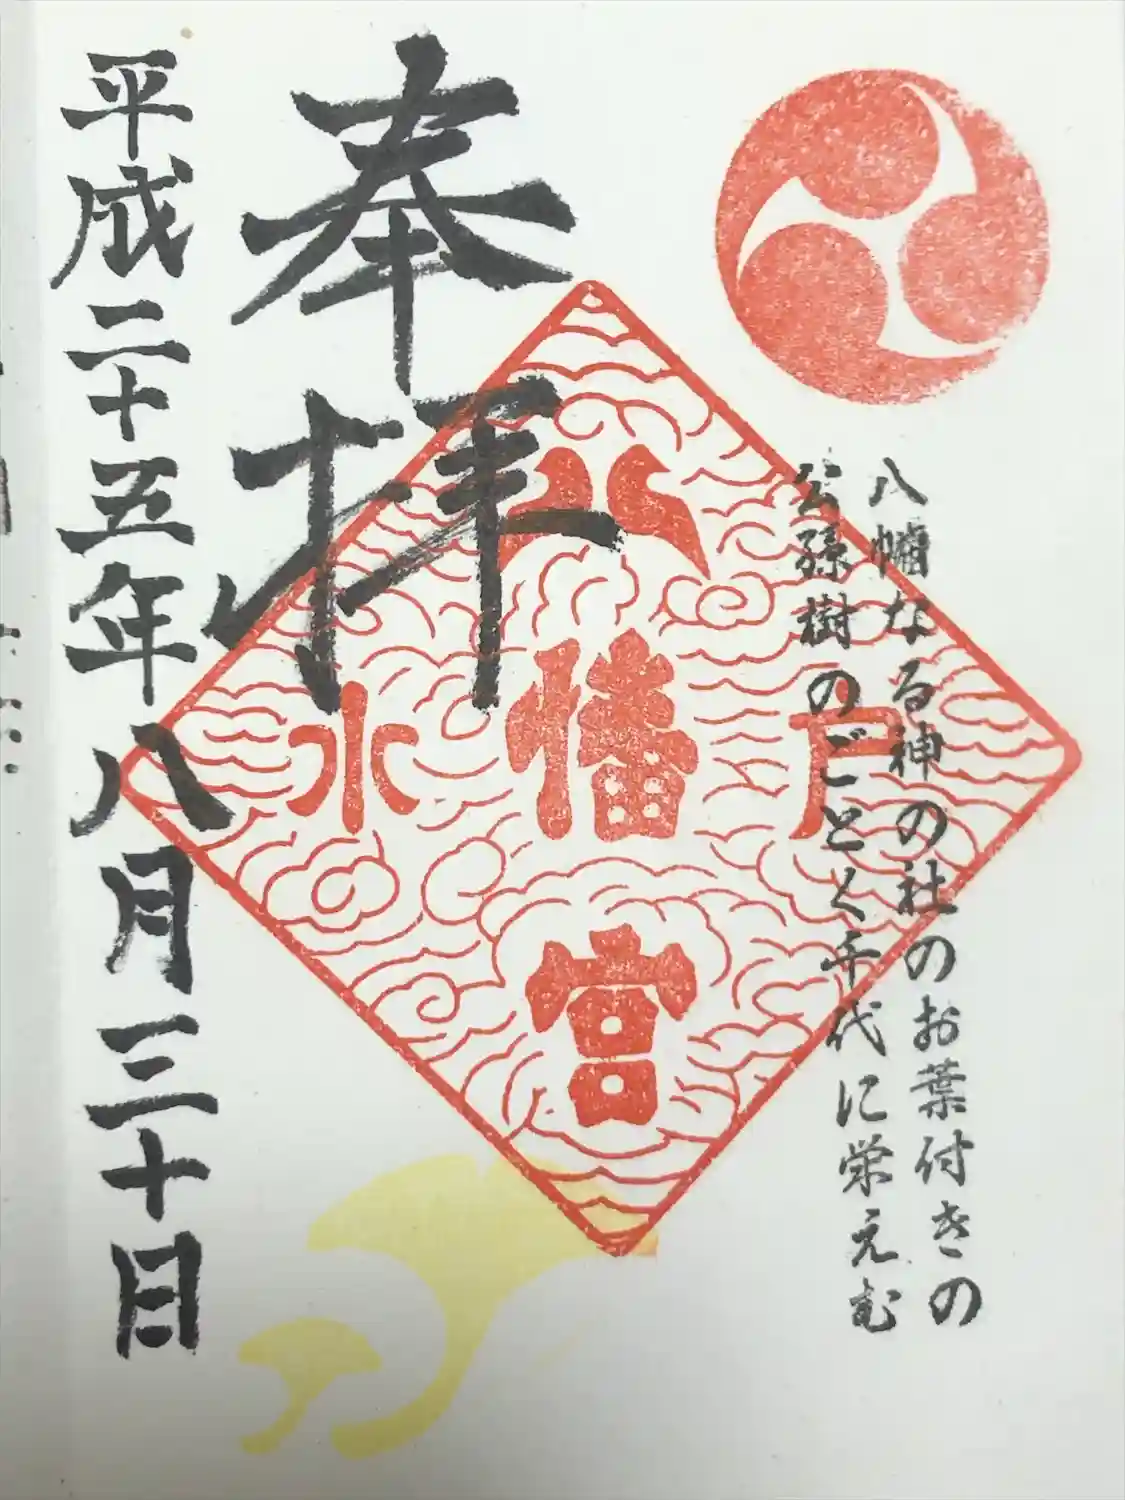 八幡なる神の社のお葉付きの
公孫樹のごとく千代に栄えむ
奉拝
八幡宮
水戸
平成二十五年八月三十日